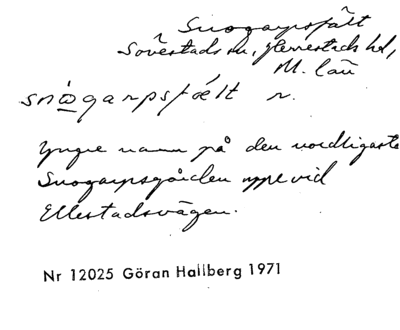 Snogarpsfält
Sövestads sn, Herrestads hd,
M. län
snωgarpsfælt n.
Yngre namn på den nordligaste
Snogarpsgården uppe vid
Ellestadsvägen.
Nr 12025 Göran Hallberg 1971